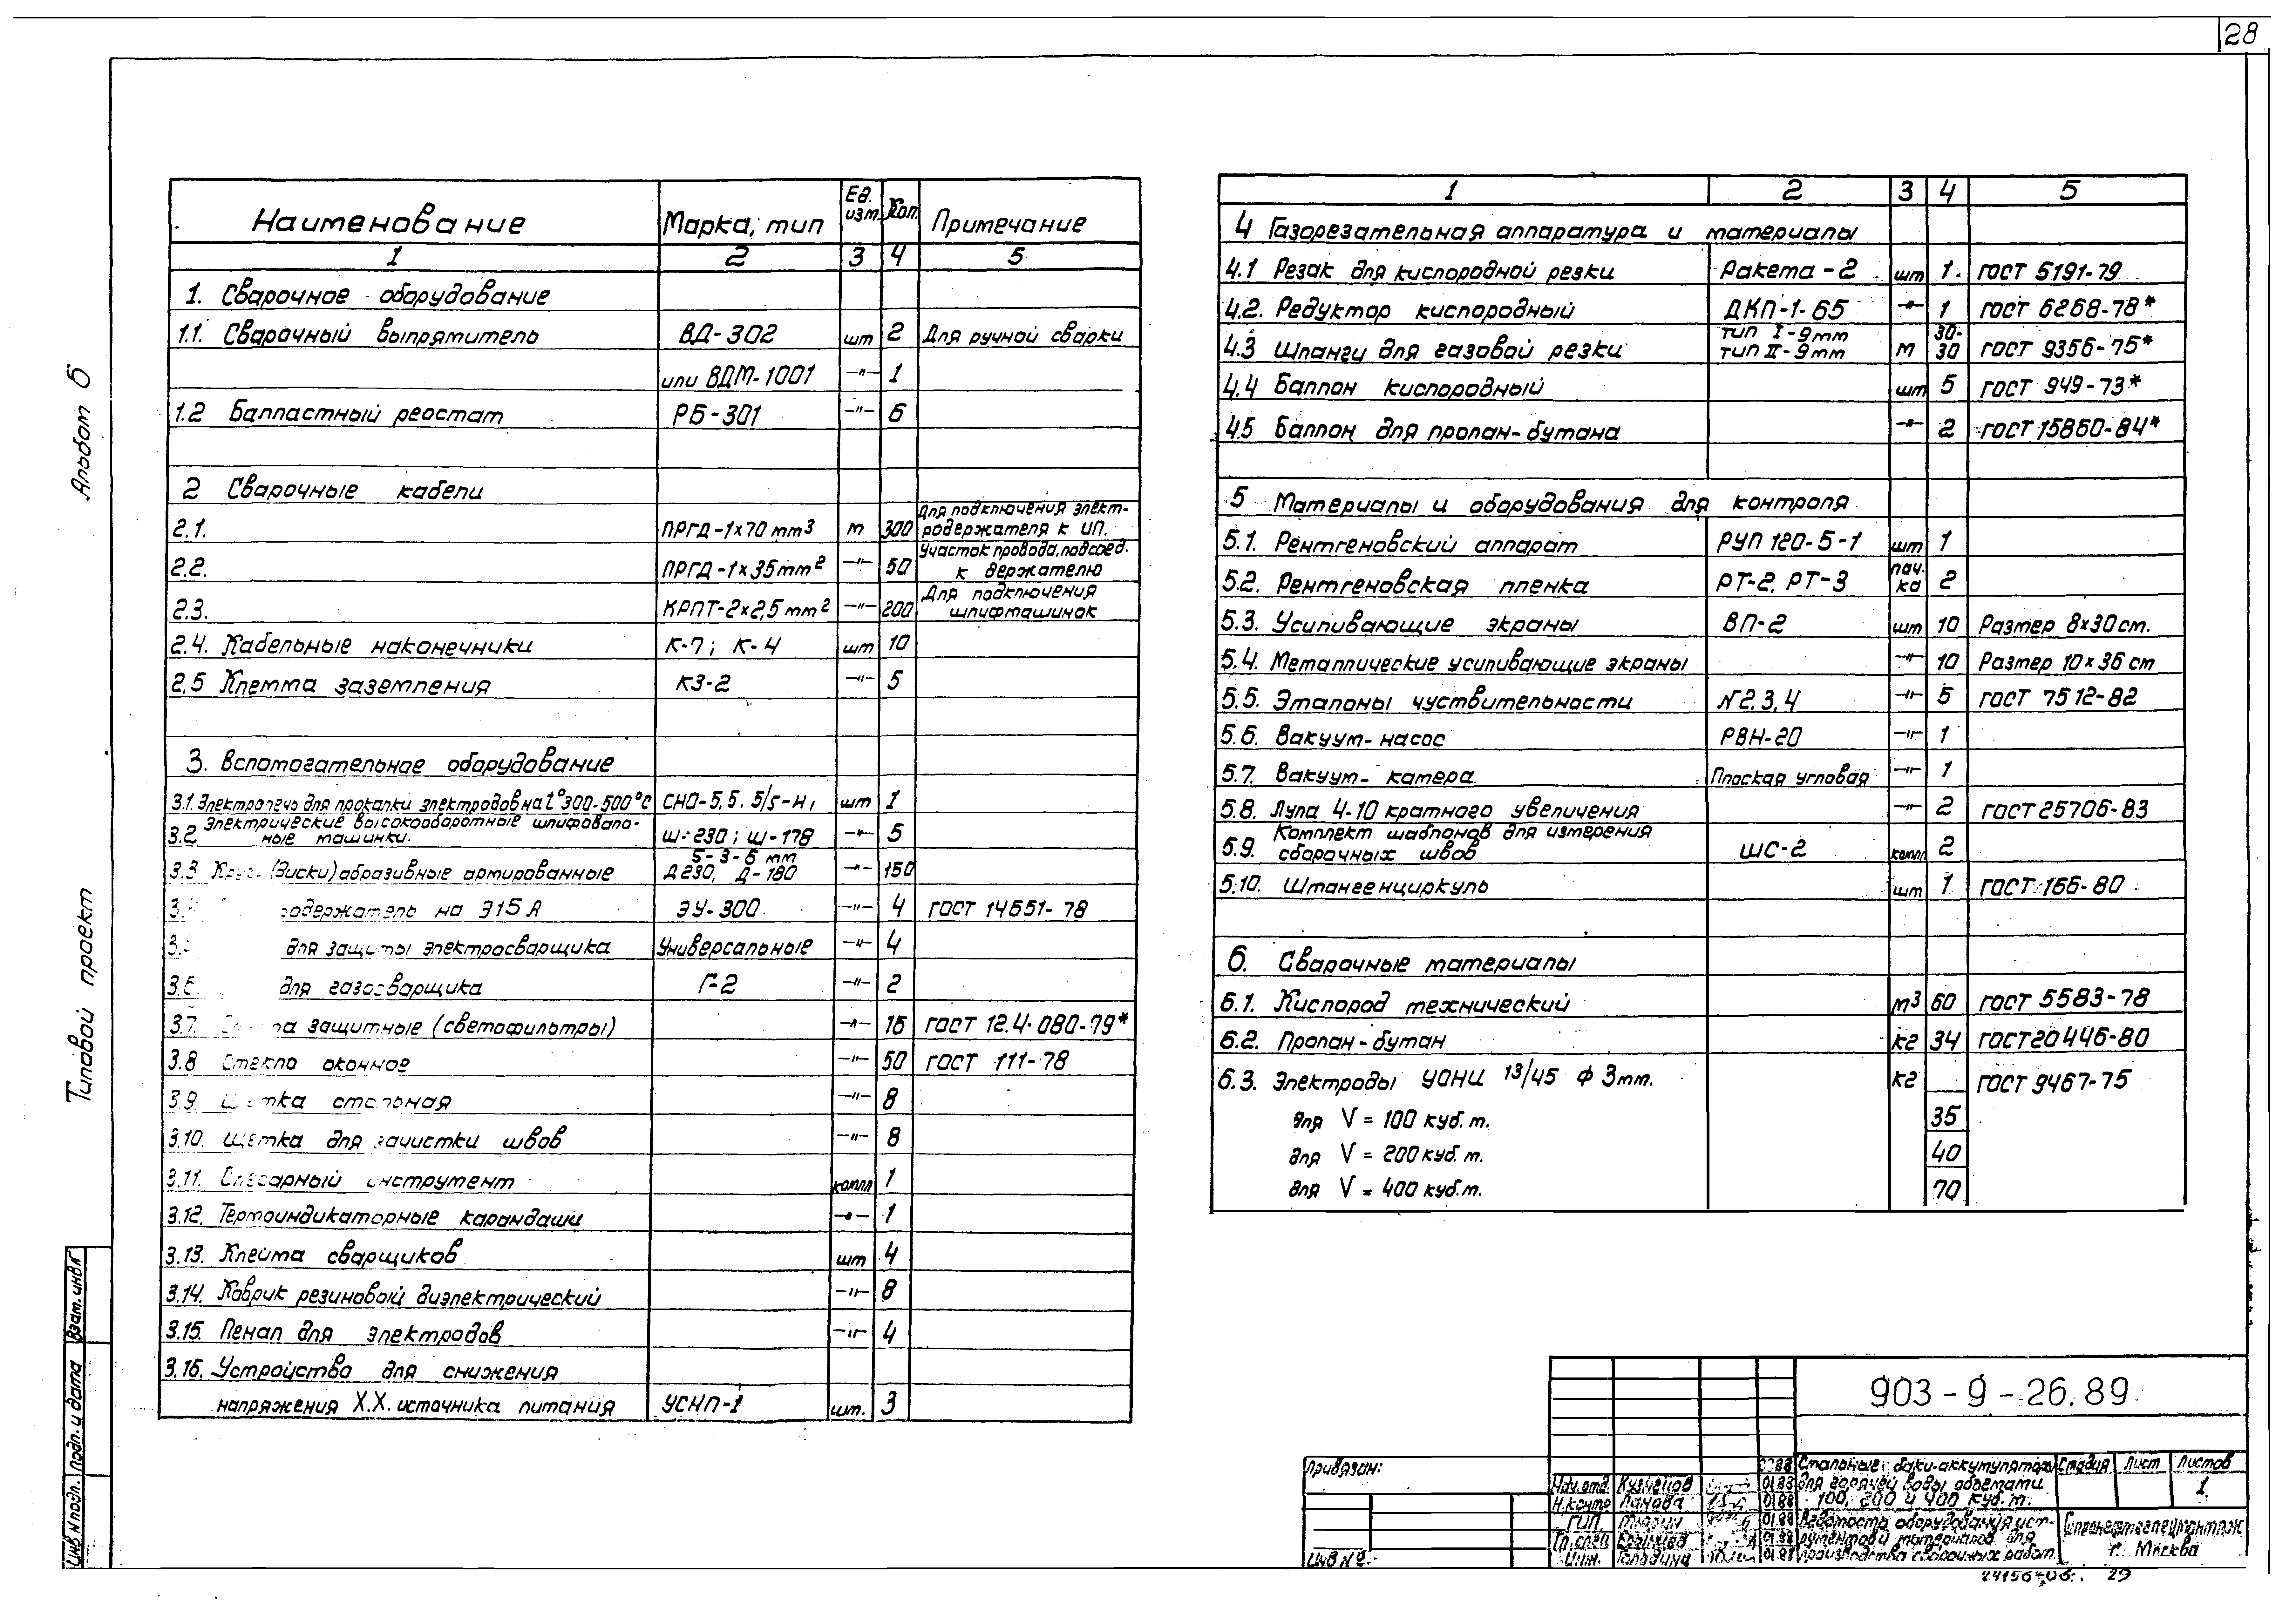 28
Альбом 6
Типовой проект
Наименование Марка, тип Ед. изм. Кол. Примечание
1 2 3 4 5
1. Сварочное оборудование
1.1. Сварочный выпрямитель ВД-302 шт 2 Для ручной сварки
или ВДМ-1001 –"– 1
1.2 Балластный реостат РБ-301 –"– 6
2 Сварочные кабели
2.1. ПРГД-1х70 mm³ м 300 Для подключения элект-родержателя к ИП.
2.2. ПРГД-1х35 mm² –"– 50 Участок провода, подсоед. к держателю
2.3. КРПТ-2х2,5 mm² –"– 200 Для подключения шлифмашинок
2.4. Кабельные наконечники К-7; К-4 шт 10
2.5 Клемма заземления КЗ-2 –"– 5
3. Вспомогательное оборудование
3.1. Электропечь для прокалки электродов на t°300-500°С СНО-5,5. 5/5-И1 шт 1
3.2 Электрические высокооборотные шлифоваль-ные машинки. Ш-230; Ш-178 –"– 5
3.3 (диски) абразивные армированные 5-3-6 mm Д230, Д-180 –"– 150
одержатель на 315 А ЭУ-300 –"– 4 ГОСТ 14651-78
для защиты электросварщика Универсальные –"– 4
3.6 для газосварщика Г-2 –"– 2
3.7. защитные (светофильтры) –"– 16 ГОСТ 12.4.080-79*
3.8 Стекло оконное –"– 50 ГОСТ 111-78
3.9 Щетка стальная –"– 8
3.10. Щетка для зачистки швов –"– 8
3.11. Слесарный инструмент компл 1
3.12. Термоиндикаторные карандаши –"– 1
3.13. Клейма сварщиков шт 4
3.14. Коврик резиновый диэлектрический –"– 8
3.15. Пенал для электродов –"– 4
3.16. Устройство для снижения
напряжения Х.Х. источника питания УСНП-1 шт. 3
1 2 3 4 5
4 Газорезательная аппаратура и материалы
4.1 Резак для кислородной резки Ракета-2 шт 1 ГОСТ 5191-79
4.2. Редуктор кислородный ДКП-1-65 –"– 1 ГОСТ 6268-78*
4.3 Шланги для газовой резки тип I-9mm тип II-9mm м 30 30 ГОСТ 9356-75*
4.4 Баллон кислородный шт 5 ГОСТ 949-73*
4.5 Баллон для пропан-бутана –"– 2 ГОСТ 15860-84*
5 Материалы и оборудования для контроля
5.1. Рентгеновский аппарат РУП 120-5-1 шт 1
5.2. Рентгеновская пленка РТ-2, РТ-3 пач. ка 2
5.3. Усиливающие экраны ВП-2 шт 10 Размер 8х30 cm.
5.4. Металлические усиливающие экраны –"– 10 Размер 10х36 cm
5.5. Эталоны чуствительности N2,3,4 –"– 5 ГОСТ 7512-82
5.6. Вакуум-насос РВН-20 –"– 1
5.7. Вакуум-камера Плоская угловая –"– 1
5.8. Лупа 4-10 кратного увеличения –"– 2 ГОСТ 25706-83
5.9. Комплект шаблонов для измерения сварочных швов ШС-2 компл 2
5.10. Штангенциркуль шт 1 ГОСТ 166-80
6. Сварочные материалы
6.1. Кислород технический м³ 60 ГОСТ 5583-78
6.2. Пропан-бутан кг 34 ГОСТ 20446-80
6.3. Электроды УОНИ 13/45 Ф 3mm. кг ГОСТ 9467-75
для V = 100 куб. м. 35
для V = 200 куб. м. 40
для V = 400 куб. м. 70
903-9-26.89
Привязан:
Инв №
Нач. отд. Кузнецов 01.88
Н. контр Панова 01.88
ГИП 01.88
Гл. спец 01.88
Инж. 01.88
Стальные баки-аккумуляторы для горячей воды объемами 100, 200 и 400 куб. м.
Ведомость оборудования, инст-рументов и материалов для производства сварочных работ.
Стадия Лист Листов
1
Гипронефтеспецмонтаж
г. Москва
24156-06. 29
Взам. инв N
Подп. и дата
Инв N подл.